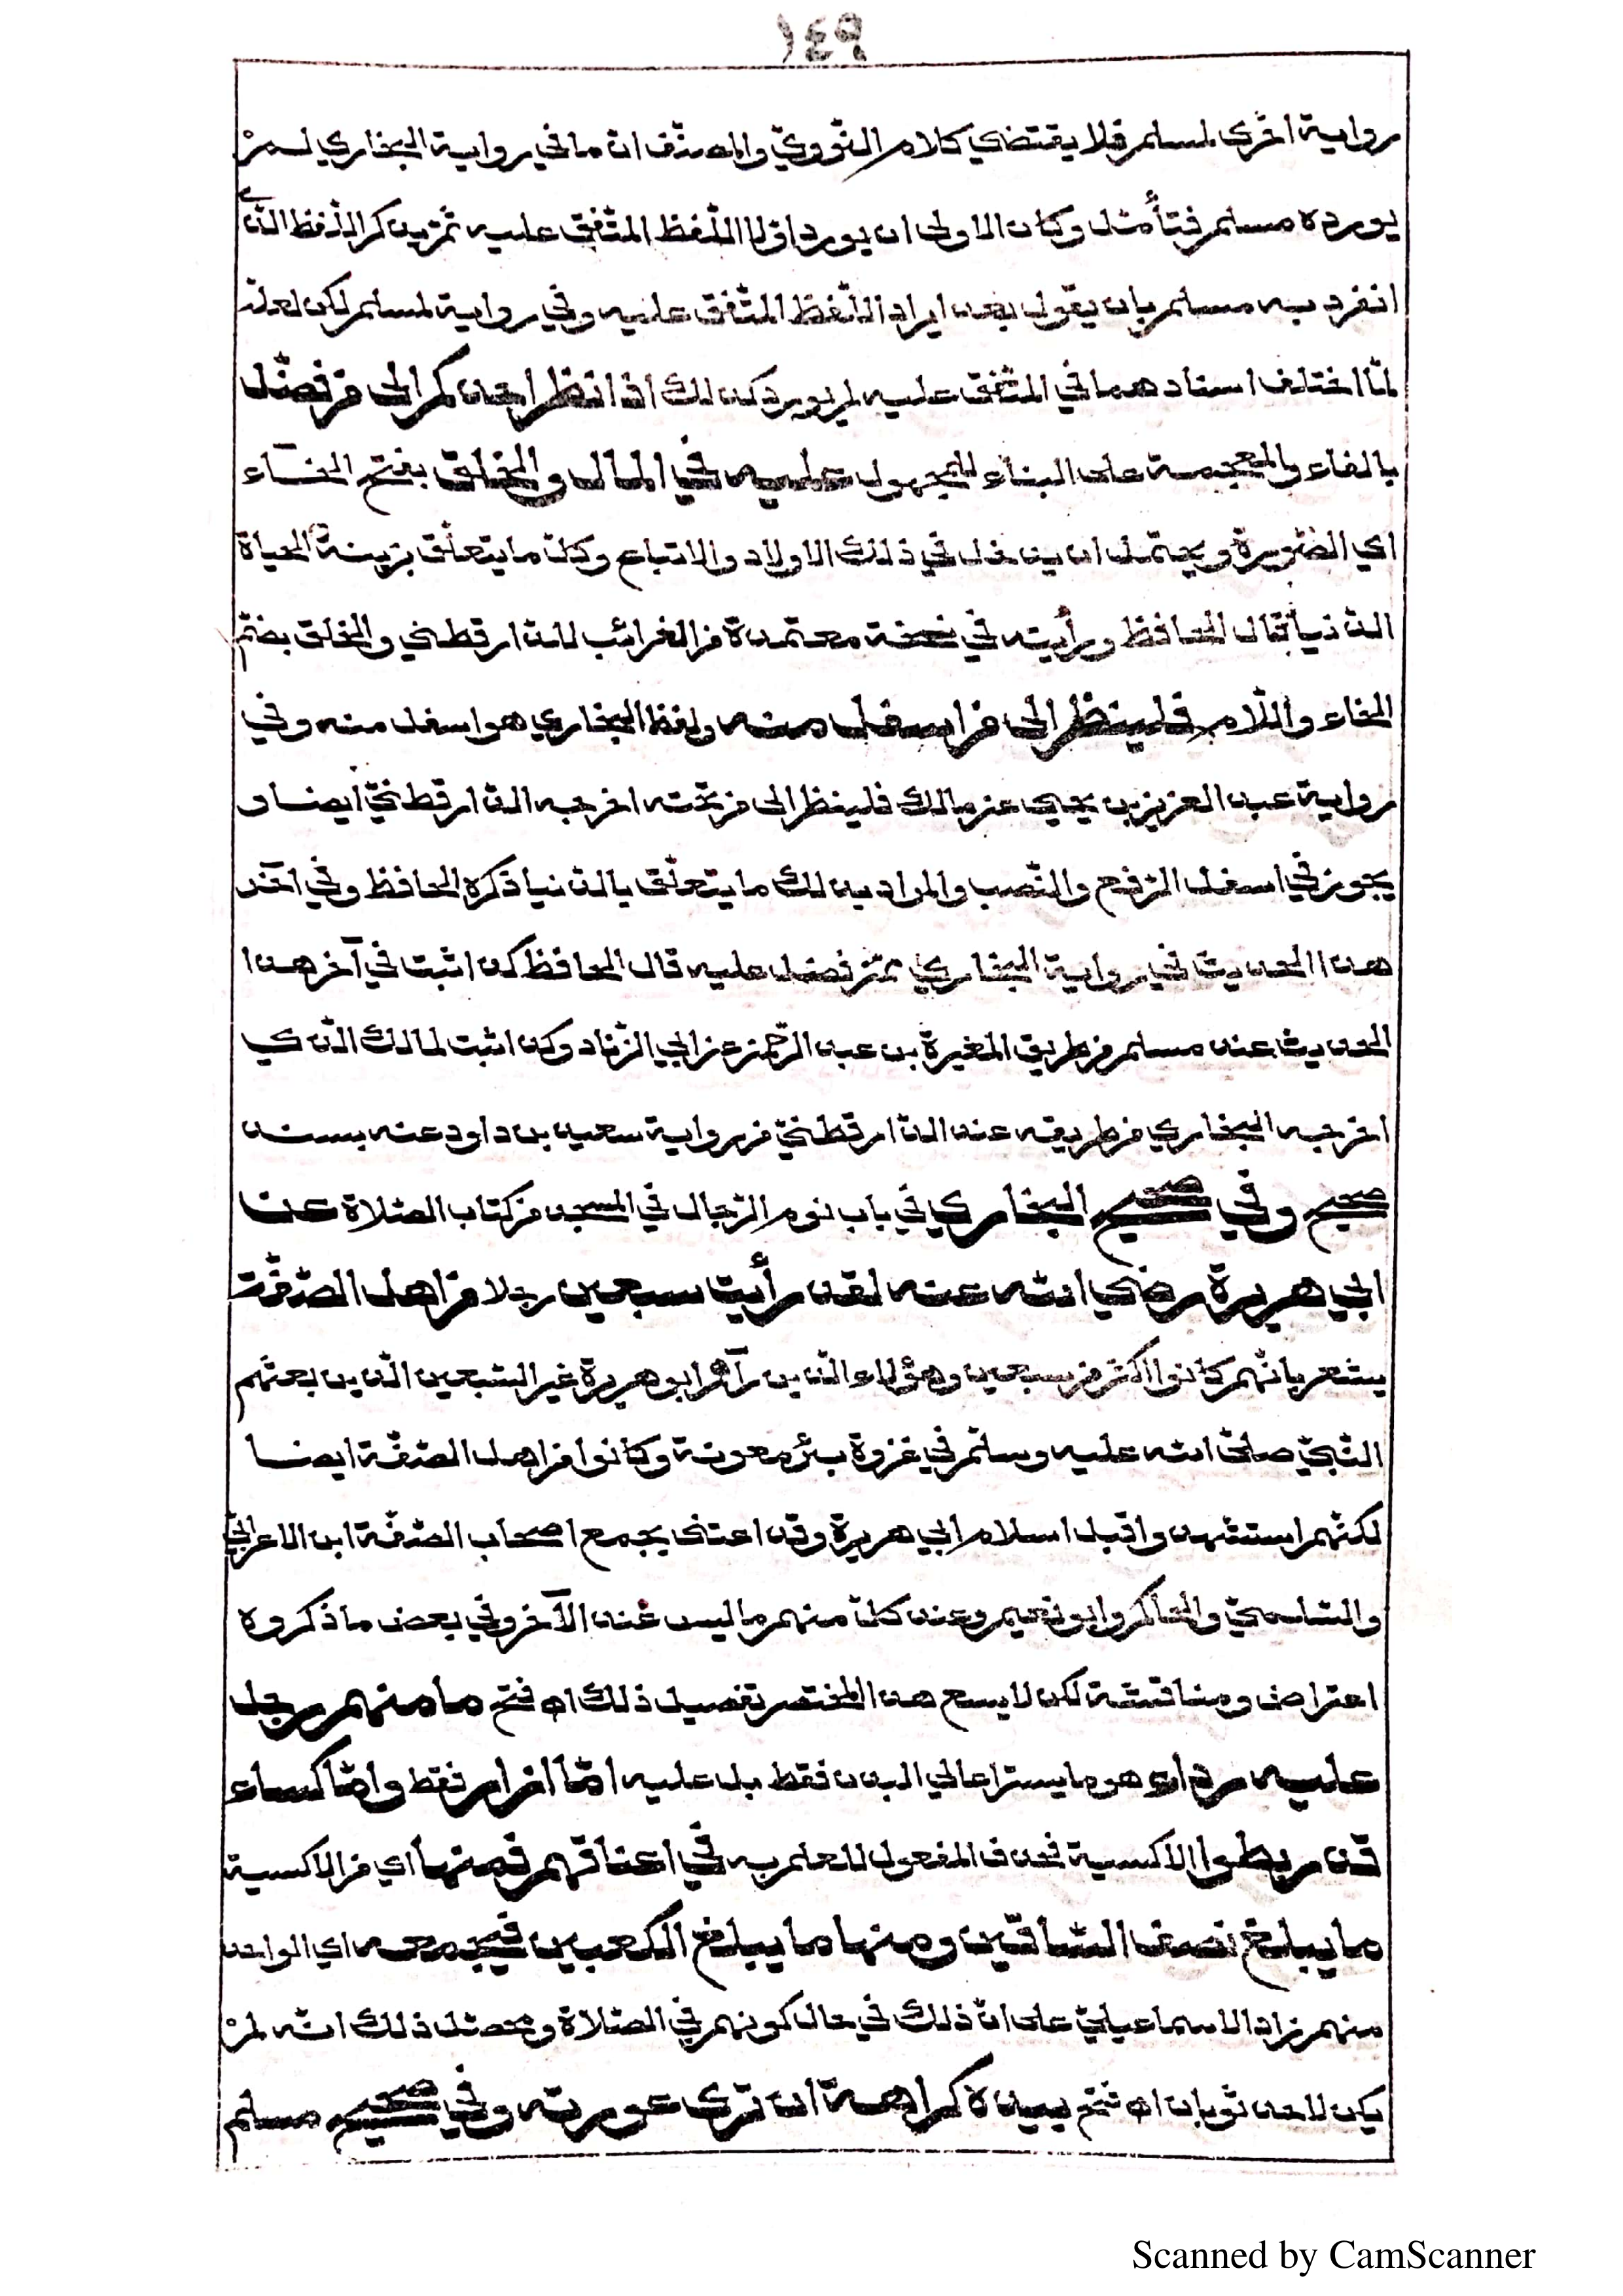 ١٤٩
رواية اخرى لمسلم فلا يقتضي كلام النّوويّ والمصنّف انّ ما في رواية البخاري لم
يورده مسلم فتأمّل وكان الاولى ان يورد اوّلا اللّفظ المتّفق عليه ثمّ يذكر اللّفظ الّذي
انفرد به مسلم بان يقول بعد ايراد اللّفظ المتّفق عليه وفي رواية لمسلم لكن لعلّه
لمّا اختلف اسنادهما في المتّفق عليه لم يورد كذلك اذا انظر احدكم الى من فضّل
بالفاء والمعجمة على البناء للمجهول عليه في المال والخلق بفتح الخاء
اي الصّورة ويحتمل ان يدخل في ذلك الاولاد والاتباع وكلّ ما يتعلّق بزينة الحياة
الدّنيا قال الحافظ ورأيته في نسخة معتمدة من الغرائب للدّارقطني والخلق بضمّ
الخاء واللّام فلينظر الى من اسفل منه ولفظ البخاري هو اسفل منه وفي
رواية عبد العزيز بن يحيي عن مالك فلينظر الى من تحته اخرجه الدّارقطنيّ ايضا و
يجوز في اسفل الرّفع والنّصب والمراد بذلك ما يتعلّق بالدّنيا ذكره الحافظ وفي آخر
هذا الحديث في رواية البخاري ممّن فضل عليه قال الحافظ كذا ثبت في آخر هذا
الحديث عند مسلم من طريق المغيرة بن عبد الرّحمن عن ابي الزّناد وكذا ثبت لمالك الّذي
اخرجه البخاري من طريقه عند الدّارقطنيّ من رواية سعيد بن داود عنه بسند
صحيح وفي صحيح البخاري في باب نوم الرّجال في المسجد من كتاب الصّلاة عن
ابي هريرة رضي الله عنه لقد رأيت سبعين رجلا من اهل الصّفّة
يشعر بانّهم كانوا اكثر من سبعين وهؤلاء الّذين رآهم ابو هريرة غير السّبعين الّذين بعثهم
النّبيّ صلّى الله عليه وسلّم في غزوة بئر معونة وكانوا من اهل الصّفّة ايضا
لكنّهم استشهدوا قبل اسلام ابي هريرة وقد اعتنى بجمع اصحاب الصّفّة ابن الاعرابيّ
والسّلميّ والحاكم وابو نعيم وعند كلّ منهم ما ليس عند الآخر وفي بعض ما ذكروه
اعتراض ومناقشة لكن لا يسع هذا المختصر تفصيل ذلك اه فتح ما منهم رجل
عليه رداء هو ما يستر اعالي البدن فقط بل عليه امّا ازار فقط وامّا كساء
قد ربطوا الاكسية فحذف المفعول للعلم به في اعناقهم فمنها اي من الاكسية
ما يبلغ نصف السّاقين ومنها ما يبلغ الكعبين فيجمعه اي الواحد
منهم زاد الاسماعيليّ على انّ ذلك في حال كونهم في الصّلاة ومحصّل ذلك انّه لم
يكن لاحد ثوبان اه فتح بيده كراهة ان ترى عورته وفي صحيح مسلم
Scanned by CamScanner